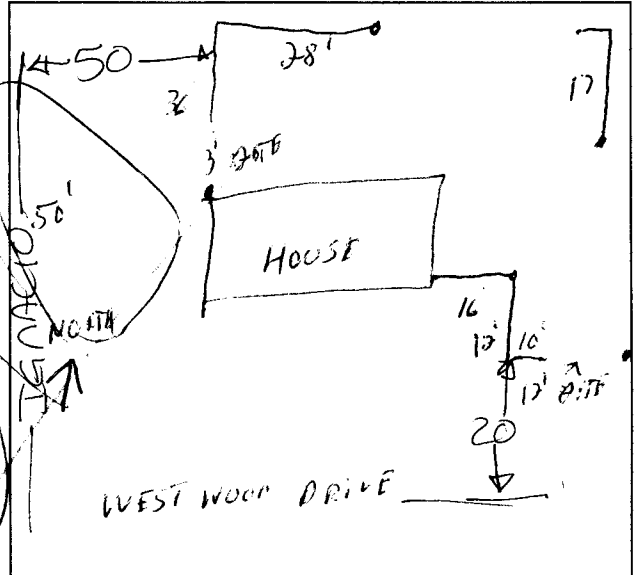 50
28'
36
17
3' GATE
50'
IGNACIO
HOUSE
NORTH
16'
12' 10'
12' GATE
20
WESTWOOD DRIVE